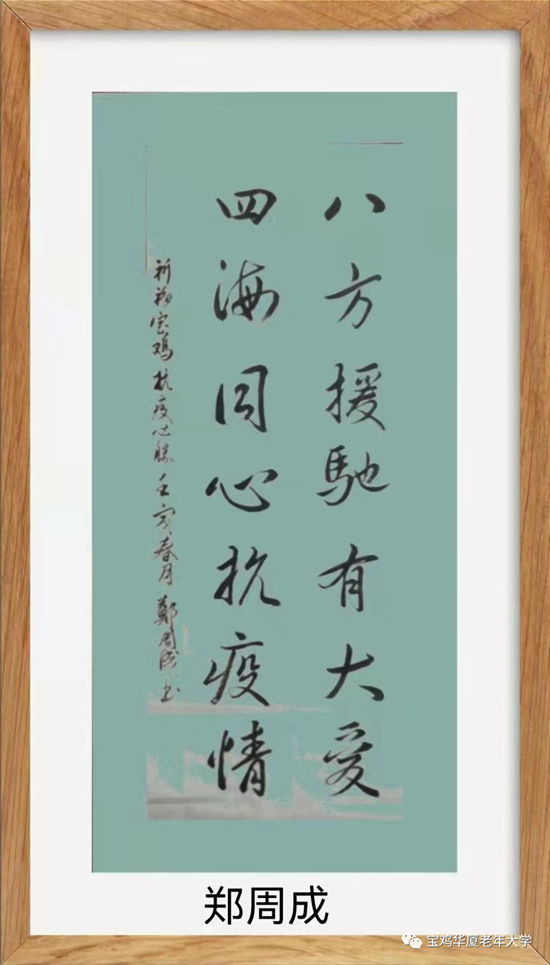 八方援馳有大爱
四海同心抗疫情
祈福宝鸡抗疫必胜 壬寅春月 鄭周成书
郑周成
宝鸡华厦老年大学